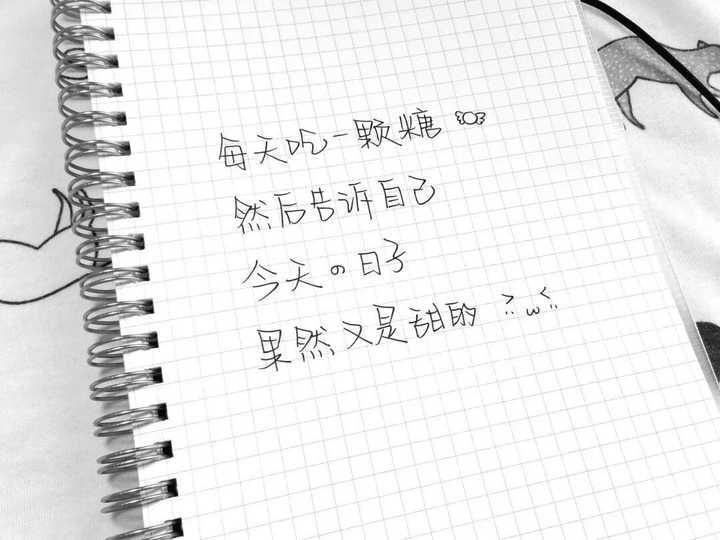 每天吃一颗糖
然后告诉自己
今天の日子
果然又是甜的